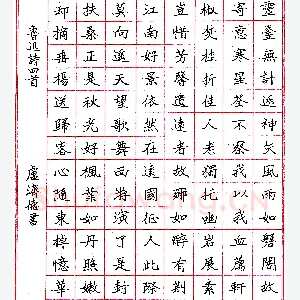 靈臺無計逃神矢風雨如磐闇故
寄意寒星荃不察我以我血薦軒
椒焚桂折佳人老獨托幽岩展素
豈惜芳馨遺遠者故鄉如醉有荆
江南好景依然在遠國征人此際
莫向遙天望歌舞西遊演了是封
扶桑正是秋光好楓葉如丹照嫩
却摘垂楊送歸客心隨東棹憶華
魯迅詩四首
盧濟書